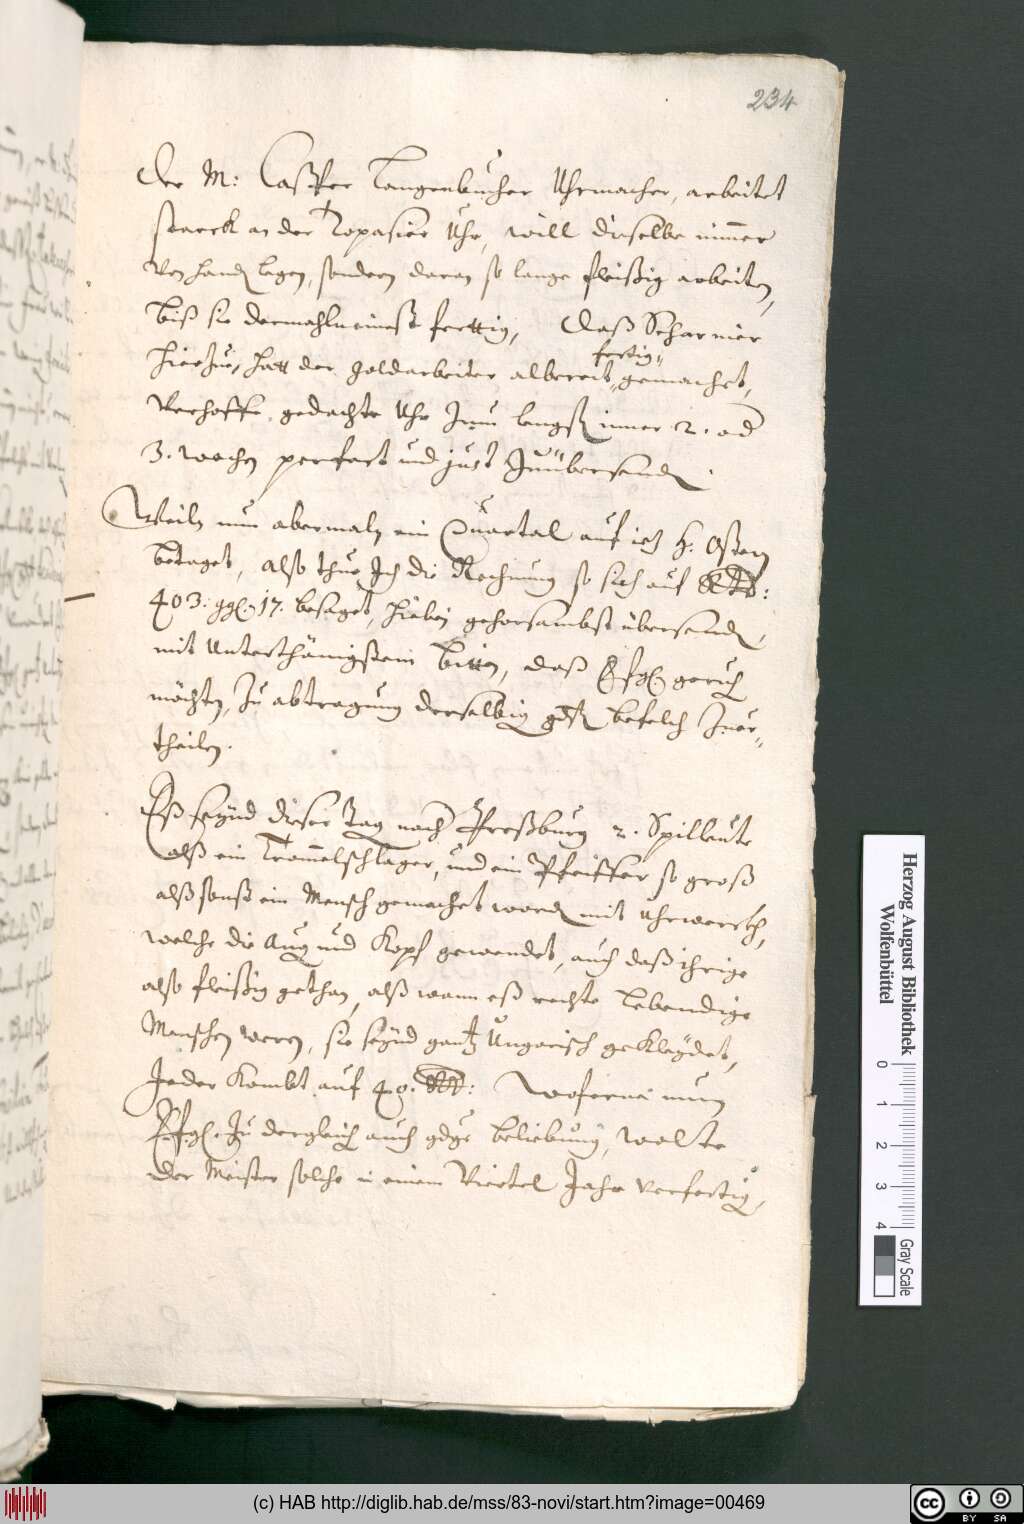 234
Der M: Casper Langenbucher Uhrmacher, arbeitet
starck an der Topasier Uhr, will dieselbe nimer
von hand legen, sondern daran so lange fleißig arbeiten,
biß sie dermahln einest fertig, Daß Scharnier
fertig
hierzue, hatt der goldarbeiter albereit gemachet,
Verhoffe, gedachte Uhr Inn lengst inner 2. od
3. wochen perfect und just Zuübersend.
Weiln nun abermaln ein Quartal auf ietz H. Ostern
betaget, also thue Ich die Rechnung so sich auf
403: 17. besaget, hiebei gehorsambst übersend,
mit Unterthänigstem bitten, daß EfG geruch
möchten, Zu abtragung derselbig gdst befelch Zuer-
theilen.
Eß seynd diese tag nach Preßburg 2. Spilleute
alß ein Tromelschlager, und ein Pfeiffer so groß
alß sonst ein Mensch gemachet word mit Uhrwerckh,
welche die Aug und Kopf gewendet, auch daß ihrige
also fleißig gethan, alß wann eß rechte Lebendige
Menschen weren, sie seynd gantz Ungarisch gekleydet,
Jeder Kombt auf 40. Woferne nun
EfG. Zu dergleich auch gdge beliebung, wolte
der Meister solche in einem Viertel Jahr verfertig,
Herzog August Bibliothek
Wolfenbüttel
0 1 2 3 4
Gray Scale
(c) HAB http://diglib.hab.de/mss/83-novi/start.htm?image=00469
cc BY SA